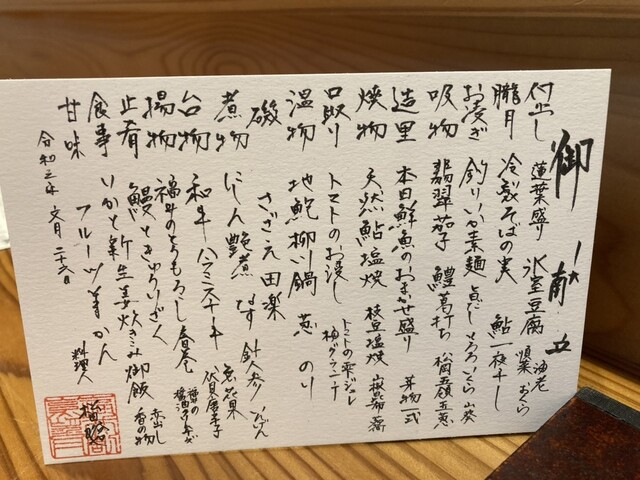 御献立
付出し 蓮葉盛り 氷室豆腐 海老 順菜 おくら
朧月 冷製そばの実 鮎一夜干し
お凌ぎ 釣りいか素麺 とろろ いくら 山葵
吸物 翡翠茄子 鱧葛打ち
造里 本日鮮魚のおまかせ盛り 芽物一式
焼物 天然鮎塩焼 枝豆塩焼
口取り トマトのお浸し トマトの
温物 地鮑柳川鍋 葱 のり
磯 さざえ田楽
煮物 にしん艶煮 なす 針人参 いんげん
台物 和牛ハラミステーキ 無花果 伏見唐辛子
揚物 福井のとうもろこし春巻
止肴 鰻ときゅうりざく
食事 いかと新生姜炊き込み御飯 赤出し 香の物
甘味 フルーツ羊かん
令和三年 文月 二十六日
料理人